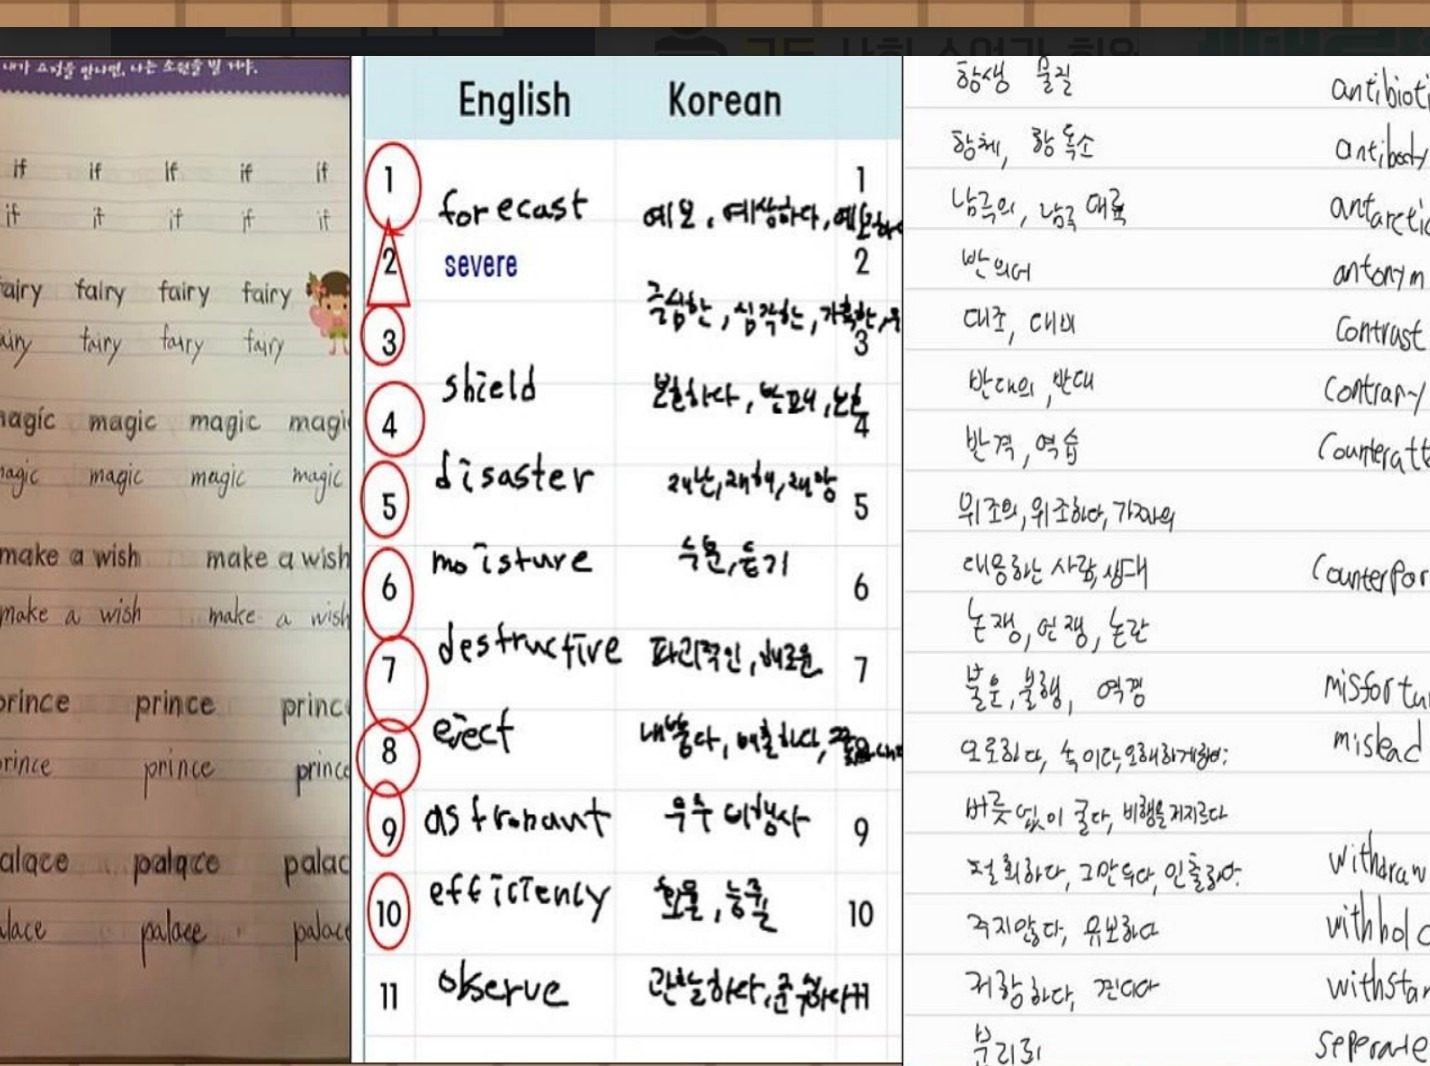 내가 요정을 만나면, 나는 소원을 빌 거야.
if if if if if
if if if if if
fairy fairy fairy
fairy fairy fairy
magic magic
magic magic magic
make a wish make a wish
make a wish make a wish
prince
prince
palace
palace
English Korean
1 forecast 예보, 예상하다, 1
2 severe 극심한, 심각한, 가혹한, 2
3 shield 보호하다, 방패, 3
4 disaster 재난, 재해, 재앙 4
5 moisture 수분, 습기 5
6 destructive 파괴적인, 해로운 6
7 eject 내뿜다, 배출하다, 7
8 astronaut 우주 비행사
9 efficiency 효율, 능률 9
10 observe 관찰하다, 준수하다 10
11 11
항생 물질
항체, 항독소 antibody
남극의, 남극 대륙
반의어 antonym
대조, 대비 contrast
반대의, 반대 contrary
반격, 역습
위조의, 위조하다, 가짜의
대응하는 사람, 상대
논쟁, 언쟁, 논란
불운, 불행, 역경
오도하다, 속이다, mislead
버릇없이 굴다, 비행을 저지르다
철회하다, 그만두다, 인출하다. withdraw
주지않다, 유보하다
저항하다, 견디다
분리된 seperate